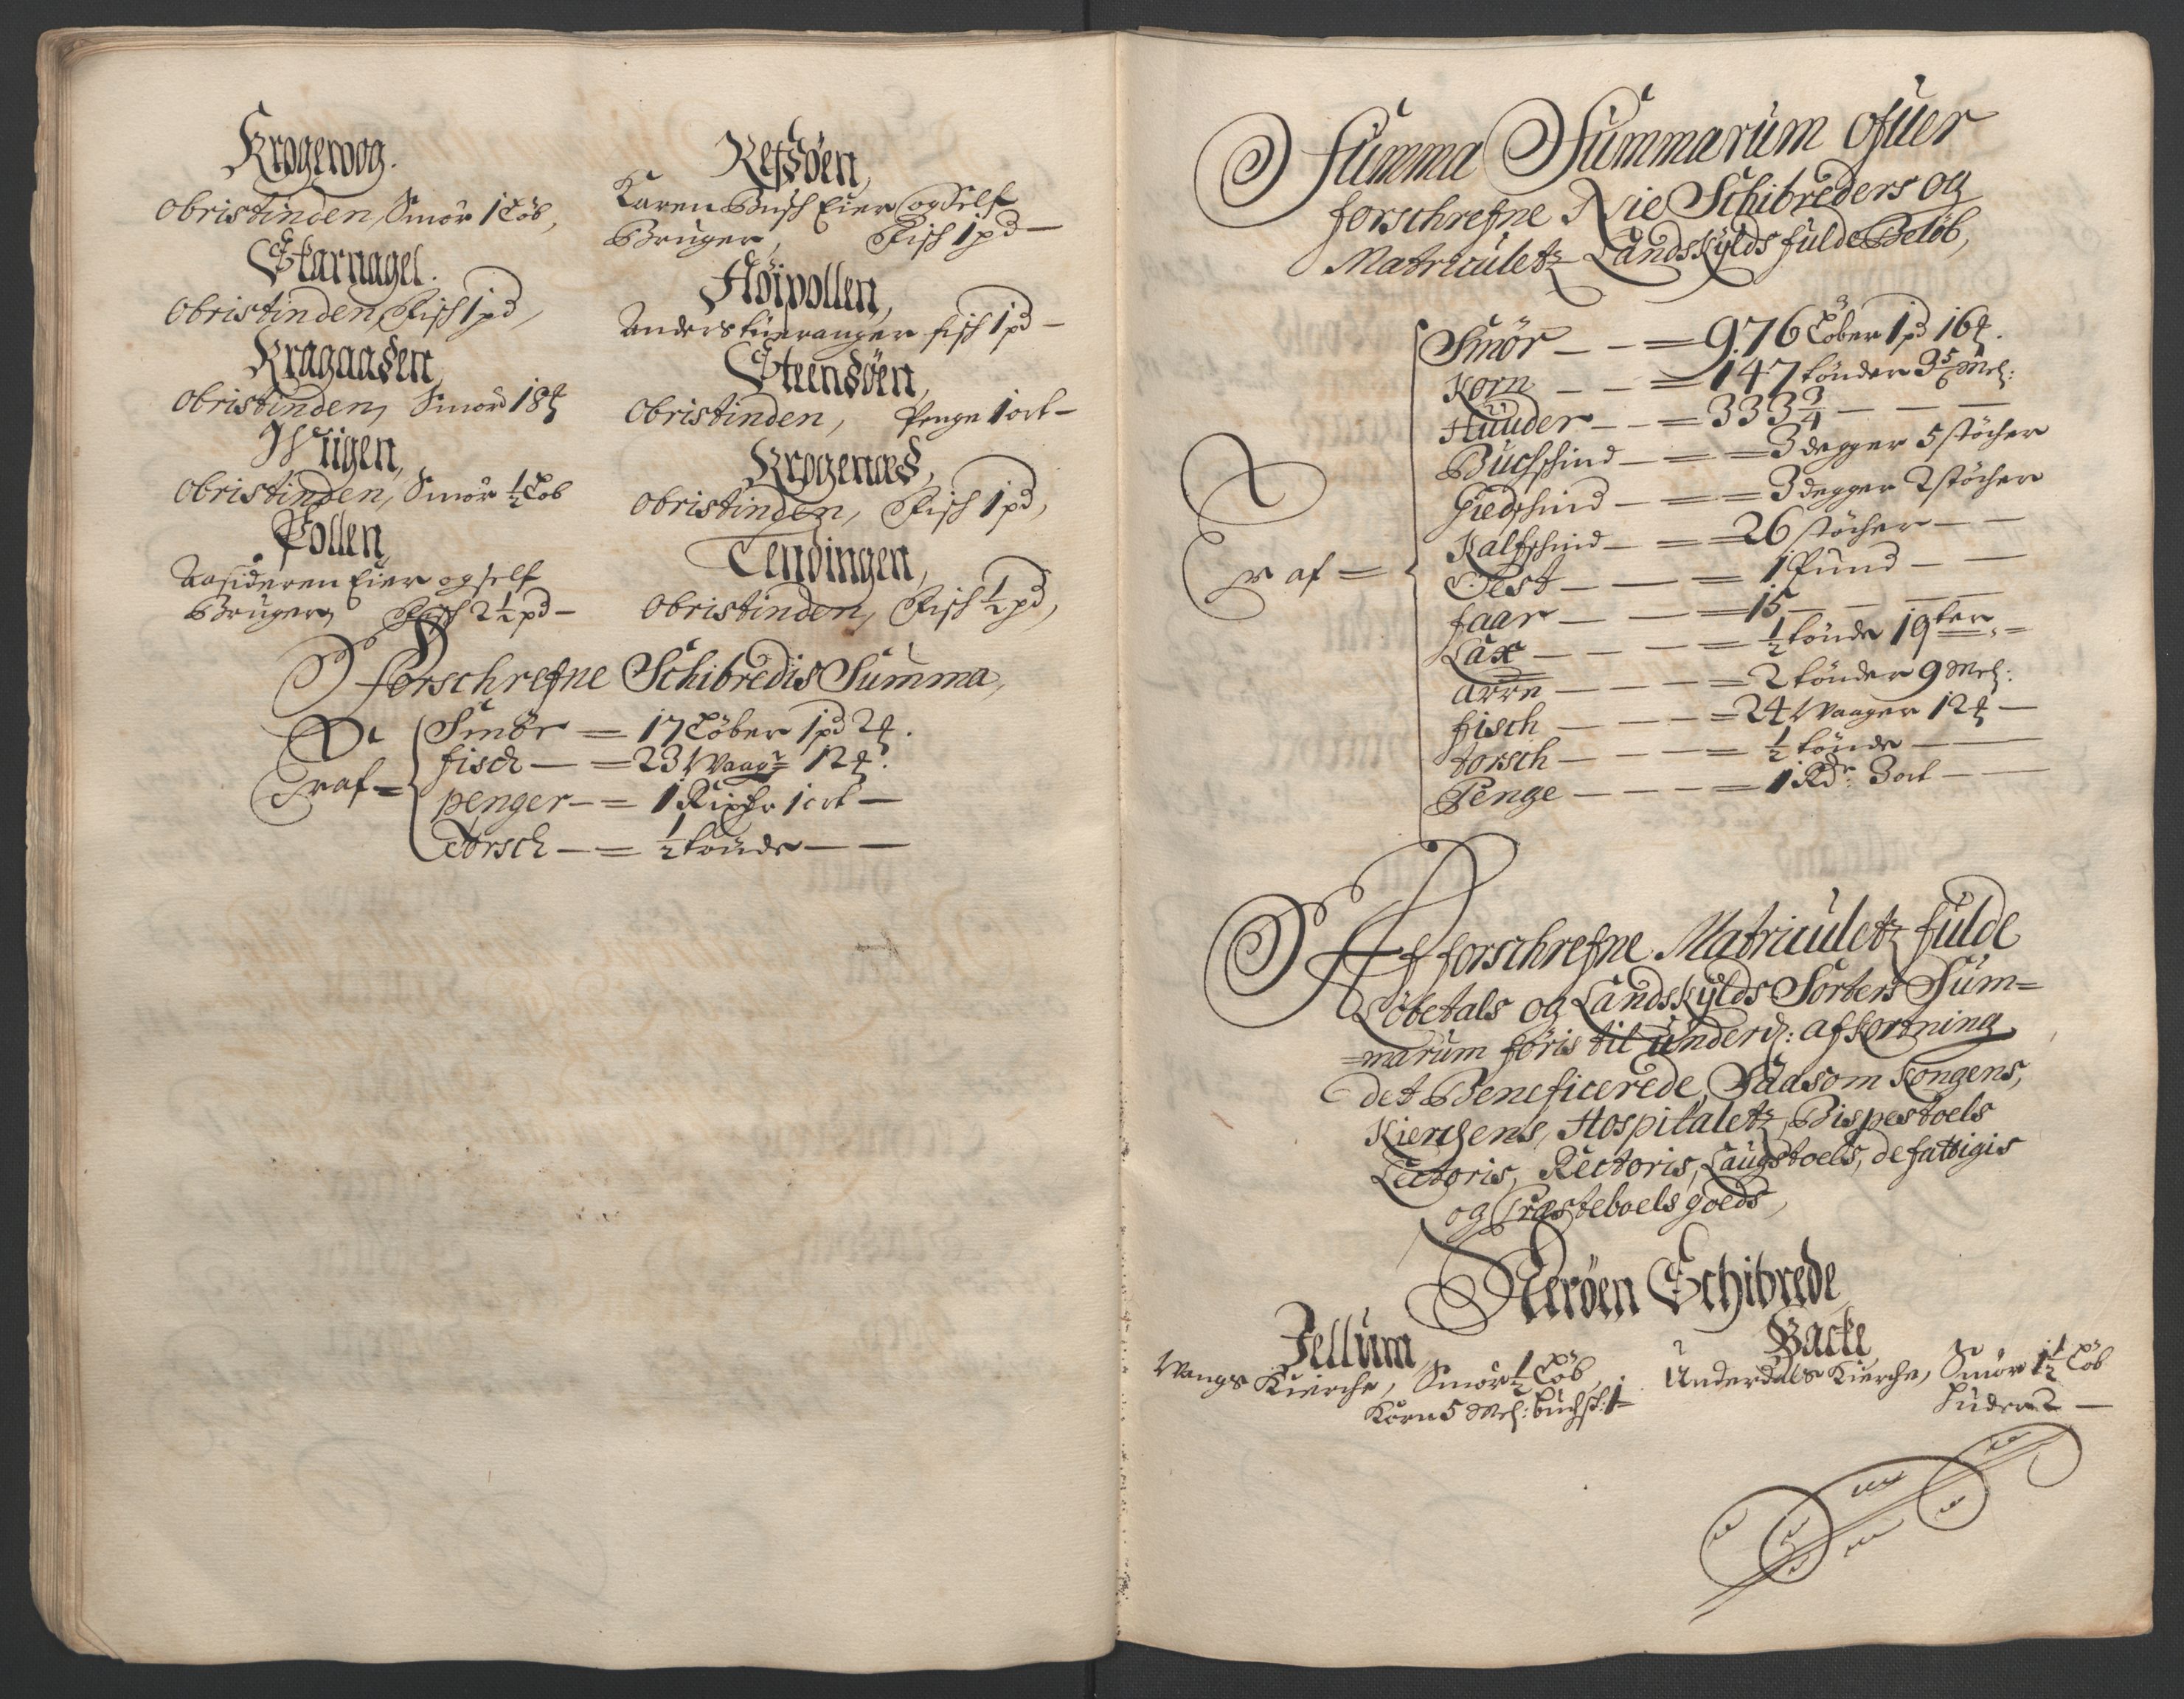 Krogewog.
Obristinden, Smör 1 Löb,
Starnagel.
Obristinden, Fisch 1 pd,
Kragaasen,
Obristinden, Smör 18 ℔
Obristinden, Smör ½ Löb
Pollen,
Aasideren Eier og self
Bruger, Fisch 2½ pd —
Refsöen,
Karen Busch Eier og Self
Bruger, Fisch 1 pd —
Höipollen,
Anders fisch 1 pd —
Steensöen,
Obristinden, Penge 1 ort —
Krogenæs,
Obristinden, Fisch 1 pd,
Tendingen,
Obristinden, Fisch ½ pd,
forschrefne Schibredis Summa,
Er af =
Smör — = 17 Löber 1 pd 2 ℔.
fisch — = 23 Waagr 12 ℔.
penger — = 1 Rixdr 1 ort —
Torsch — = ½ tönde — —
Summa Summarum ofuer
forschrefne Nie Schibreders og
Matriculetz Landskylds fulde Belöb,
Er af =
Smör — — = 976 Löber 1 pd 16 ℔.
Korn — — = 147 tönder 3⅚ Mel:
Huuder — — = 333¾ — — —
Buchschind — = = 3 degger 5 stöcher
Giedschind — — = 3 degger 2 stöcher
Kalfschind — = = 26 stöcher — —
Test — — = 1 Pund — —
faar — — = 15 — — —
Lax — — — = ½ tönde 19 ter
Arre — — — = 2 tönder 9 Mel:
fisch — — — = 24 Waager 12 ℔ —
torsch — — — = ½ tönde — —
Penge — — — = 1 Rdr 3 ort — —
Af forschrefne Matriculetz fulde
Löbetals og Landskylds Sorters Sum=
=marum föris til underd: afkortning
det Beneficerede, Saasom Kongens,
Kierchens, Hospitaletz, Bispestoels
Lectoris, Rectoris, Laugstoels, de fattigis
og Præsteboels goeds,
Neröen Schibrede
Jellum,
Wangs Kierche, Smör ½ Löb,
Korn 5 Mel: buchsk: 1 —
Backe
Underdals Kierche, Smör 1½ Löb
Huder 2 —